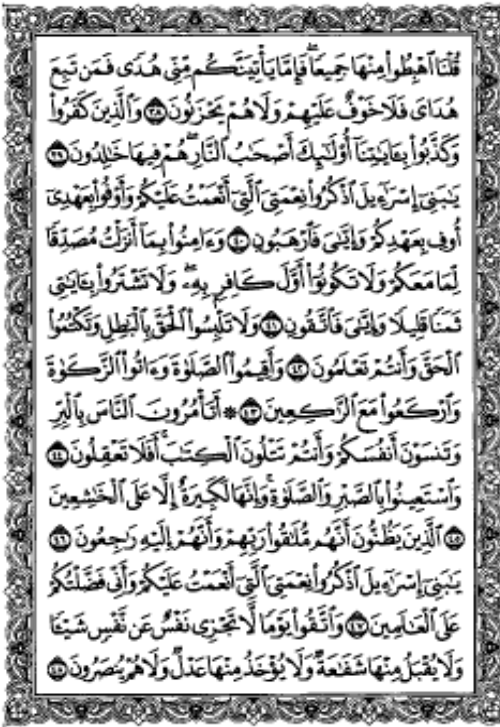 قُلْنَا ٱهْبِطُوا۟ مِنْهَا جَمِيعًا ۖ فَإِمَّا يَأْتِيَنَّكُم مِّنِّى هُدًى فَمَن تَبِعَ
هُدَاىَ فَلَا خَوْفٌ عَلَيْهِمْ وَلَا هُمْ يَحْزَنُونَ ٣٨ وَٱلَّذِينَ كَفَرُوا۟
وَكَذَّبُوا۟ بِـَٔايَٰتِنَآ أُو۟لَٰٓئِكَ أَصْحَٰبُ ٱلنَّارِ ۖ هُمْ فِيهَا خَٰلِدُونَ ٣٩
يَٰبَنِىٓ إِسْرَٰٓءِيلَ ٱذْكُرُوا۟ نِعْمَتِىَ ٱلَّتِىٓ أَنْعَمْتُ عَلَيْكُمْ وَأَوْفُوا۟ بِعَهْدِىٓ
أُوفِ بِعَهْدِكُمْ وَإِيَّٰىَ فَٱرْهَبُونِ ٤٠ وَءَامِنُوا۟ بِمَآ أَنزَلْتُ مُصَدِّقًا
لِّمَا مَعَكُمْ وَلَا تَكُونُوٓا۟ أَوَّلَ كَافِرٍۭ بِهِۦ ۖ وَلَا تَشْتَرُوا۟ بِـَٔايَٰتِى
ثَمَنًا قَلِيلًا وَإِيَّٰىَ فَٱتَّقُونِ ٤١ وَلَا تَلْبِسُوا۟ ٱلْحَقَّ بِٱلْبَٰطِلِ وَتَكْتُمُوا۟
ٱلْحَقَّ وَأَنتُمْ تَعْلَمُونَ ٤٢ وَأَقِيمُوا۟ ٱلصَّلَوٰةَ وَءَاتُوا۟ ٱلزَّكَوٰةَ
وَٱرْكَعُوا۟ مَعَ ٱلرَّٰكِعِينَ ٤٣ * أَتَأْمُرُونَ ٱلنَّاسَ بِٱلْبِرِّ
وَتَنسَوْنَ أَنفُسَكُمْ وَأَنتُمْ تَتْلُونَ ٱلْكِتَٰبَ ۚ أَفَلَا تَعْقِلُونَ ٤٤
وَٱسْتَعِينُوا۟ بِٱلصَّبْرِ وَٱلصَّلَوٰةِ ۚ وَإِنَّهَا لَكَبِيرَةٌ إِلَّا عَلَى ٱلْخَٰشِعِينَ
٤٥ ٱلَّذِينَ يَظُنُّونَ أَنَّهُم مُّلَٰقُوا۟ رَبِّهِمْ وَأَنَّهُمْ إِلَيْهِ رَٰجِعُونَ ٤٦
يَٰبَنِىٓ إِسْرَٰٓءِيلَ ٱذْكُرُوا۟ نِعْمَتِىَ ٱلَّتِىٓ أَنْعَمْتُ عَلَيْكُمْ وَأَنِّى فَضَّلْتُكُمْ
عَلَى ٱلْعَٰلَمِينَ ٤٧ وَٱتَّقُوا۟ يَوْمًا لَّا تَجْزِى نَفْسٌ عَن نَّفْسٍ شَيْـًٔا
وَلَا يُقْبَلُ مِنْهَا شَفَٰعَةٌ وَلَا يُؤْخَذُ مِنْهَا عَدْلٌ وَلَا هُمْ يُنصَرُونَ ٤٨